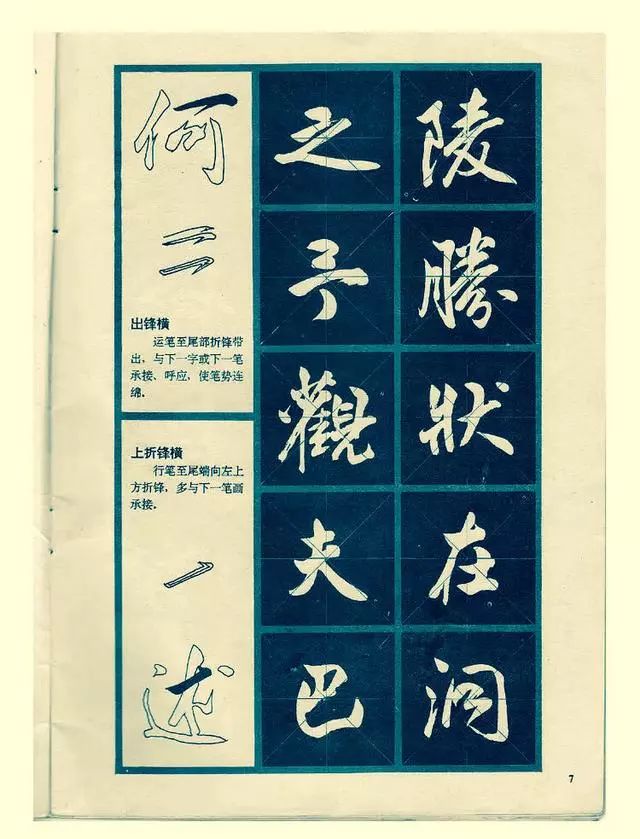 何
出锋横
运笔至尾部折锋带
出，与下一字或下一笔
承接、呼应，使笔势连
绵。
上折锋横
行笔至尾端向左上
方折锋，多与下一笔画
承接。
述
之予觀夫巴
陵勝狀在洞
7